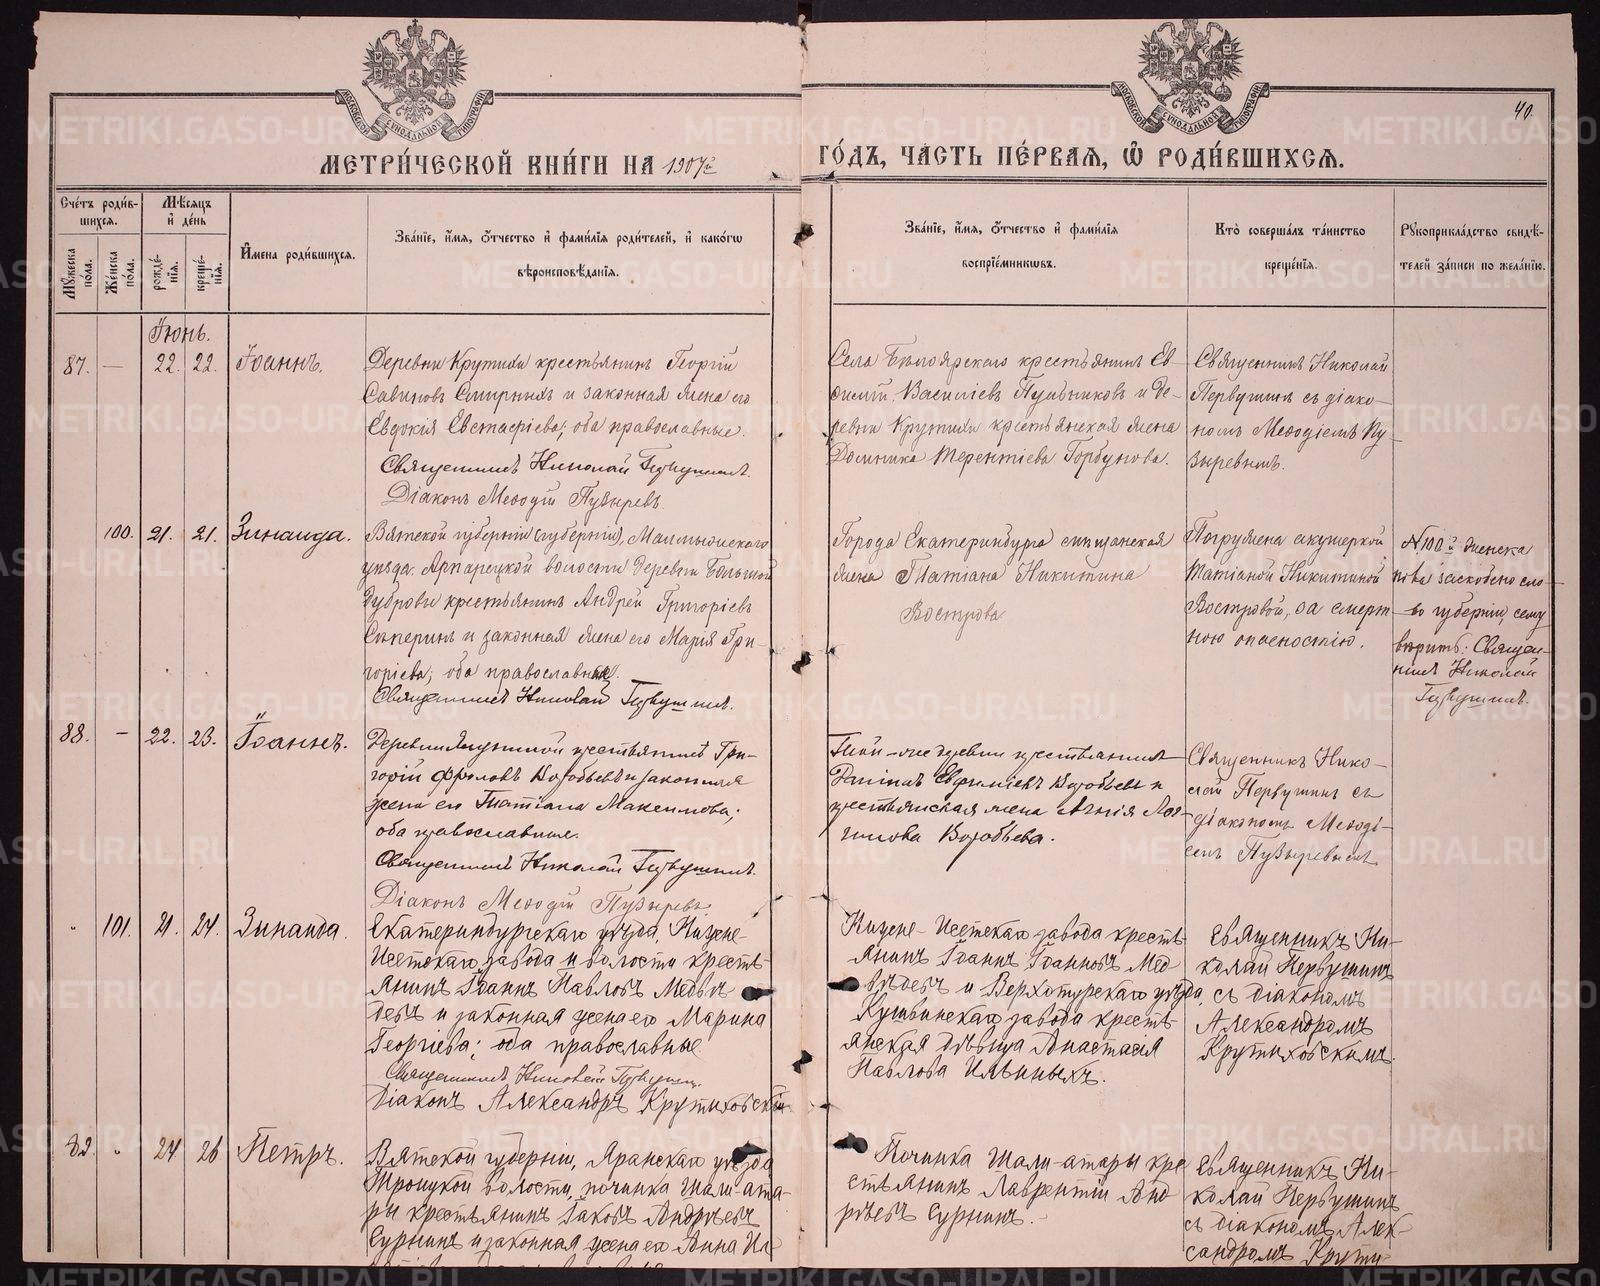 40.
МЕТРИ́ЧЕСКОЙ КНИ́ГИ НА 1907й ГО́ДЪ, ЧА́СТЬ ПЕ́РВАѦ, Ѽ РОДИ́ВШИХСѦ.
Сче́тъ роди́в-
шихсѧ.
Мѣ́сѧцъ
и҆ де́нь
Мꙋ́жеска
по́ла.
Же́нска
по́ла.
рожде́-
нїѧ.
креще́-
нїѧ.
И҆мена̀ роди́вшихсѧ.
Зва́нїе, и҆́мѧ, ѻ҆́тчество и҆ фами́лїѧ роди́телей, и҆ како́гѡ
вѣроисповѣ́данїѧ.
Зва́нїе, и҆́мѧ, ѻ҆́тчество и҆ фами́лїѧ
воспрїе́мникѡвъ.
Кто̀ соверша́лъ та́инство
креще́нїѧ.
Рꙋкоприкла́дство свидѣ́-
телей за́писи по жела́нїю.
Іюнь.
87. — 22. 22. Іоаннъ.
Деревни Крутихи крестьянинъ Георгій
Савиновъ Смирныхъ и законная жена его
Евдокія Евстафіева; оба православные.
Священникъ Николай Первушинъ.
Діаконъ Меѳодій Пузыревъ.
Села Бѣлоярскаго крестьянинъ Ев-
Василіевъ и де-
ревни Крутихи крестьянская жена
Домника Терентіева Горбунова.
Священникъ Николай
Первушинъ съ діако-
номъ Меѳодіемъ Пу-
зыревымъ.
100. 21. 21. Зинаида.
Вятской губерніи (губерніи), Малмыжскаго
уѣзда, волости деревни Большой
Дубровы крестьянинъ Андрей Григоріевъ
и законная жена его Марія Гри-
горіева; оба православные.
Священникъ Николай Первушинъ.
Города Екатеринбурга мѣщанская
жена Татіана Никитина
Вострова
Погружена акушеркой
Татіаной Никитиной
Востровой, за смерт
ною опасностію.
№ 100й женска
пола заскоблено сло-
во губерніи, сему
вѣрить: Священ-
никъ Николай
Первушинъ.
88. — 22. 23. Іоаннъ.
Деревни крестьянинъ Гри-
горій Фроловъ Воробьевъ и законная
жена его Татіана Максимова;
оба православные.
Священникъ Николай Первушинъ.
Діаконъ Меѳодій Пузыревъ.
Той-же деревни крестьянинъ
Евфиміевъ Воробьевъ и
крестьянская жена Агнія Лог-
гинова Воробьева.
Священникъ Нико-
лай Первушинъ съ
діакономъ Меѳоді-
емъ Пузыревымъ
" 101. 21. 24. Зинаида.
Екатеринбургскаго уѣзда, Нижне-
Исетскаго завода и волости кресть-
янинъ Іоаннъ Павловъ Медвѣ
девъ и законная жена его Марина
Георгіева; оба православные
Священникъ Николай Первушинъ.
Діаконъ Александръ Крутиховскій
Нижне-Исетскаго завода кресть-
янинъ Іоаннъ Іоанновъ Мед
вѣдевъ и Верхотурскаго уѣзда,
Кушвинскаго завода кресть
янская дѣвица Анастасія
Павлова Ильиныхъ.
Священникъ Ни-
колай Первушинъ
съ діакономъ
Александромъ
Крутиховскимъ.
89. " 24 26 Петръ.
Вятской губерніи, Яранскаго уѣзда
Троицкой волости, починка Шали-ата-
ры крестьянинъ Іаковъ Андреевъ
Сурнинъ и законная жена его Анна Ил-
Починка Шали-атары кре
стьянинъ Лаврентій Анд
реевъ Сурнинъ.
Священникъ Ни-
колай Первушинъ
съ діакономъ Алек-
сандромъ Крути-